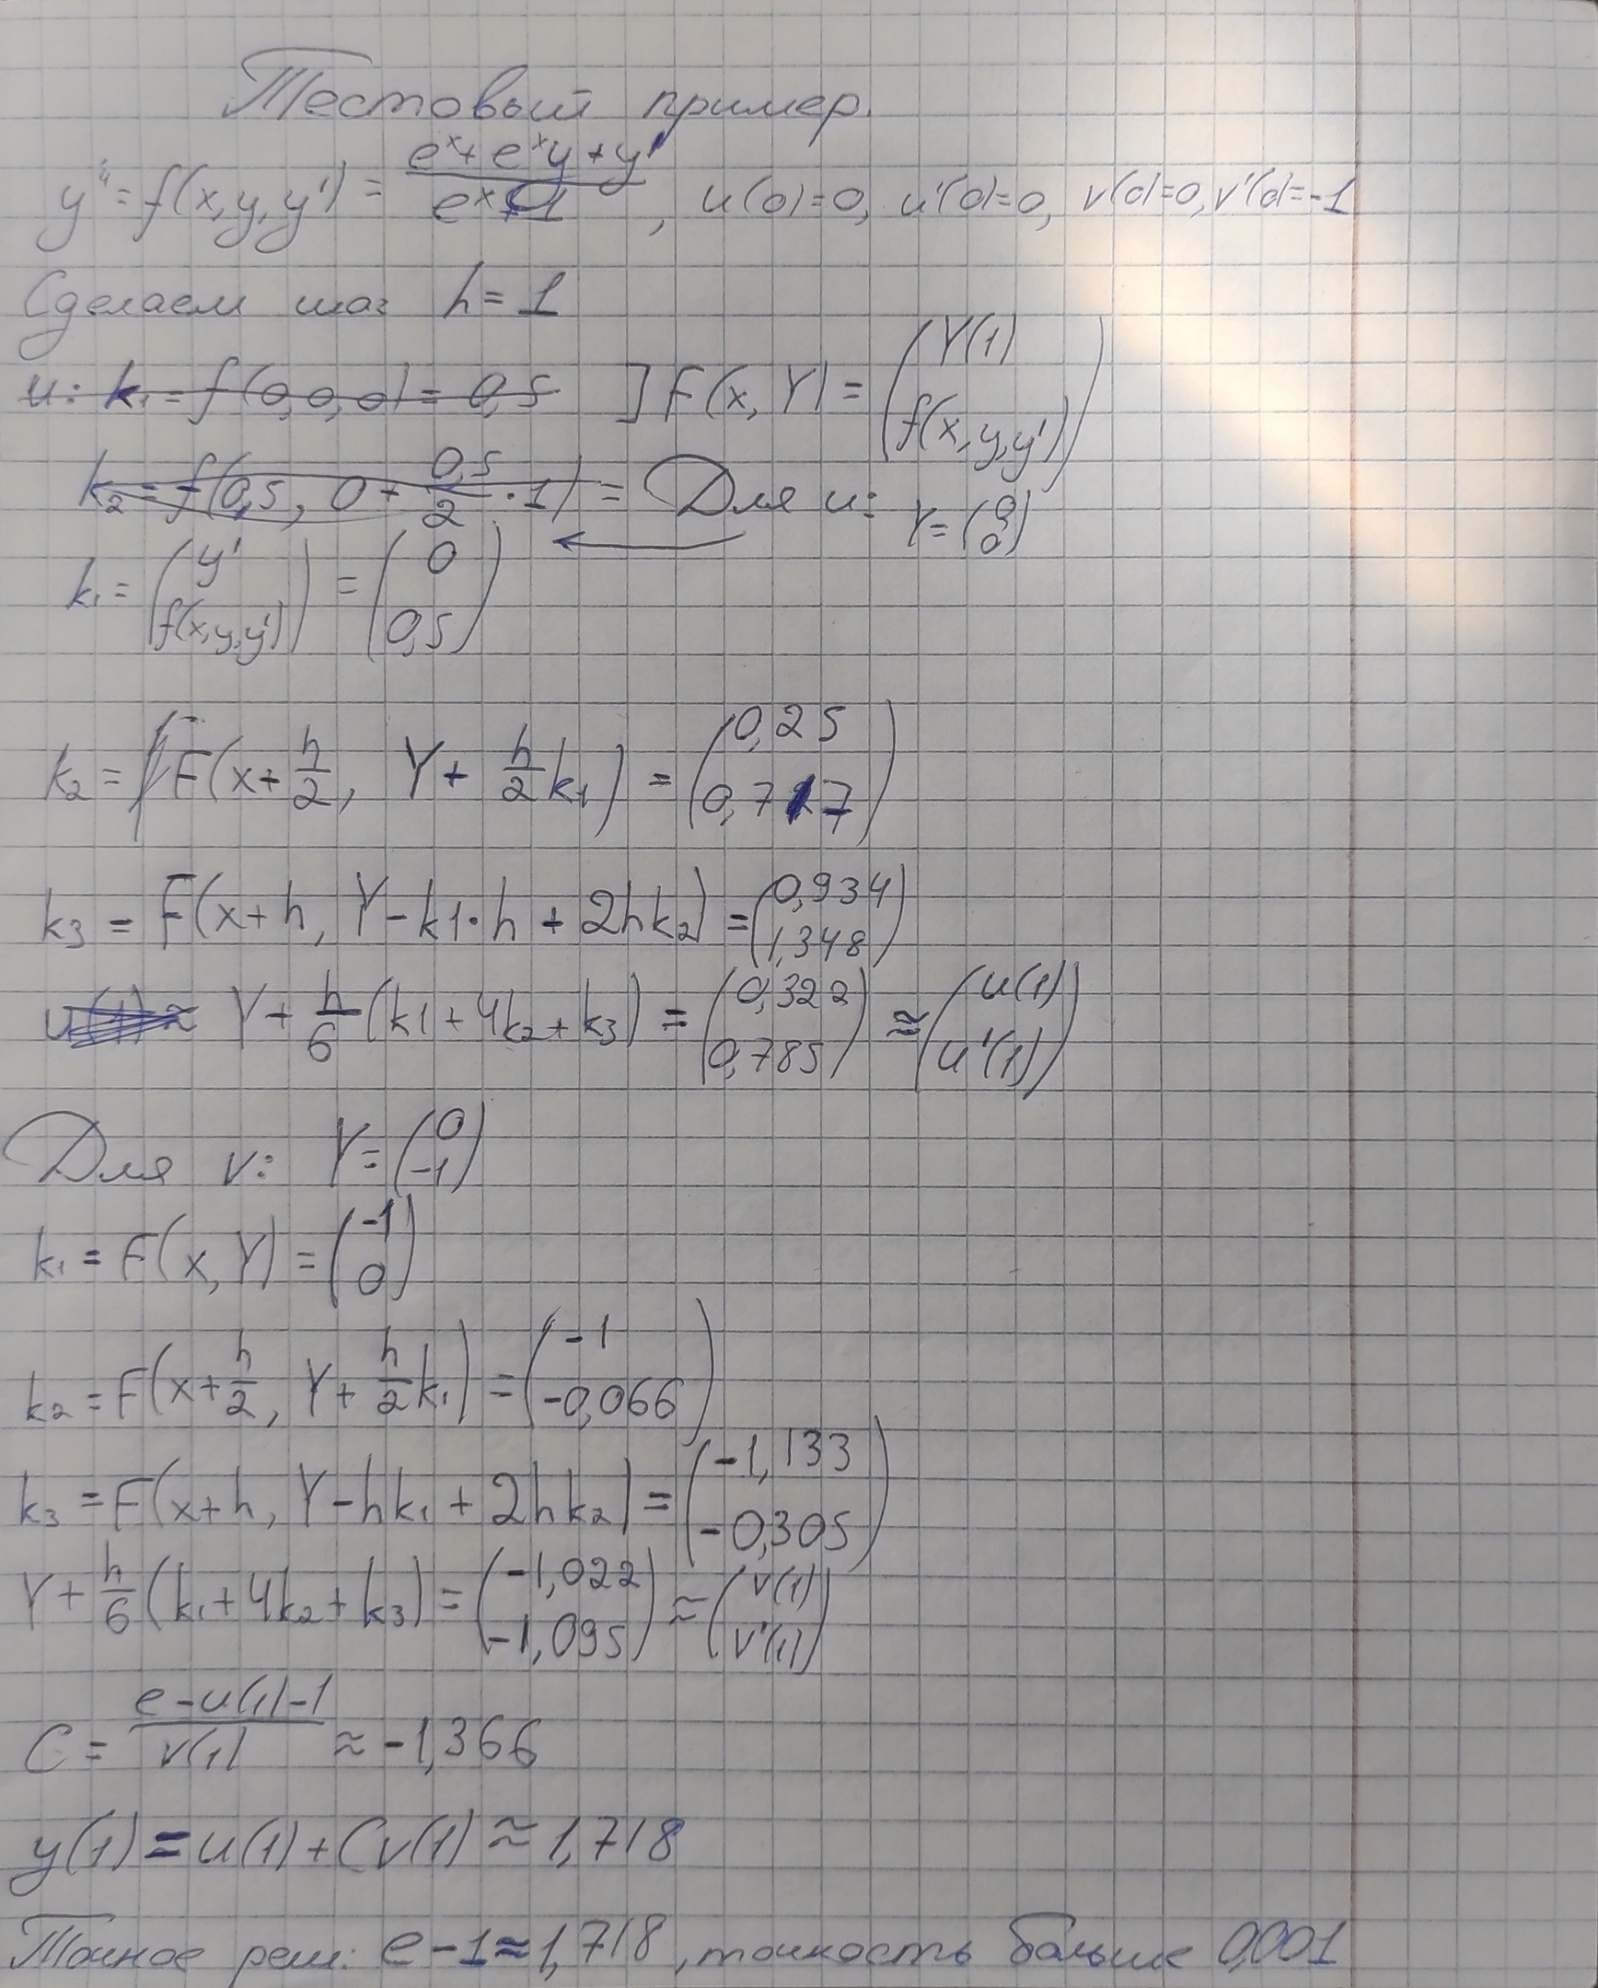 Тестовый пример.
y'' = f(x, y, y') = (e^x + e^x y + y') / (e^x + 1), u(0)=0, u'(0)=0, v(0)=0, v'(0)=-1
Сделаем шаг h = 1
u: k₁ = f(0,0,0) = 0,5 ] F(x, Y) = (Y(1) f(x,y,y'))
k₂ = f(0,5, 0 + 0,5/2 · 1) = Для u: Y = (0 0)
k₁ = (y' f(x,y,y')) = (0 0,5)
k₂ = F(x + h/2, Y + h/2 k₁) = (0,25 0,717)
k₃ = F(x+h, Y - k1·h + 2hk₂) = (0,934 1,348)
u(1) ≈ Y + h/6 (k1 + 4k₂ + k₃) = (0,322 0,785) ≈ (u(1) u'(1))
Для v: Y = (0 -1)
k₁ = F(x, Y) = (-1 0)
k₂ = F(x + h/2, Y + h/2 k₁) = (-1 -0,066)
k₃ = F(x+h, Y - hk₁ + 2hk₂) = (-1,133 -0,305)
Y + h/6 (k₁ + 4k₂ + k₃) = (-1,022 -1,095) ≈ (v(1) v'(1))
C = (e - u(1) - 1) / v(1) ≈ -1,366
y(1) = u(1) + Cv(1) ≈ 1,718
Точное реш: e - 1 ≈ 1,718, точность больше 0,001